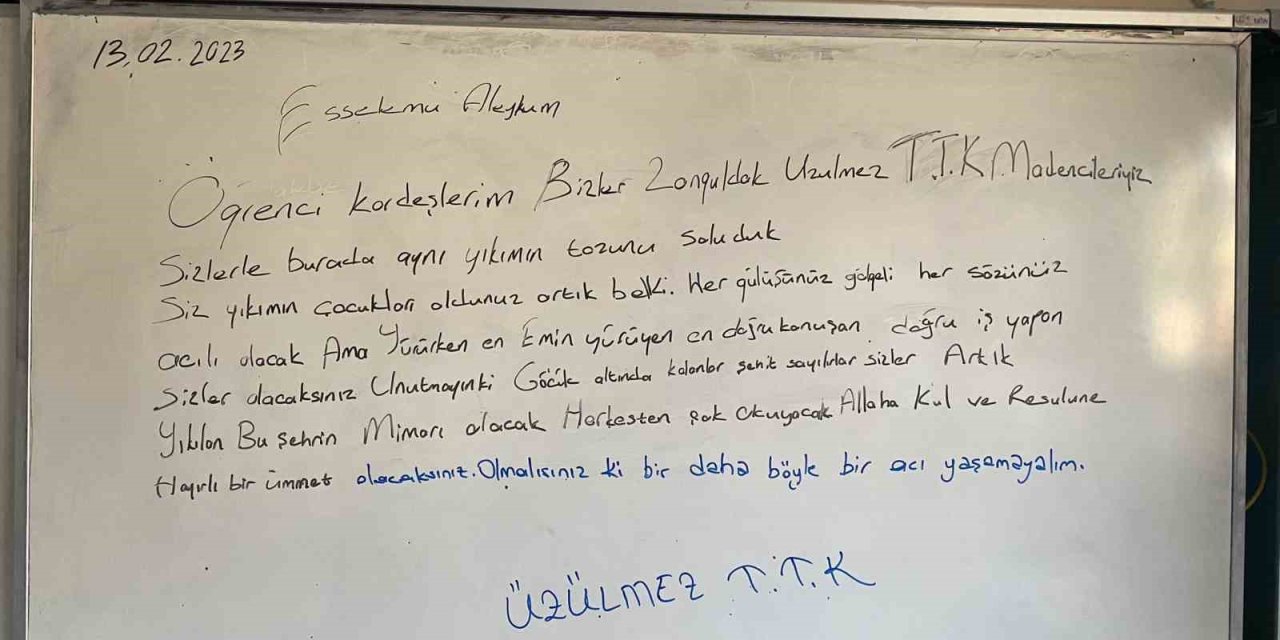 13.02.2023
Esselemü Aleykum
Öğrenci kardeşlerim Bizler Zonguldak Uzulmez T.T.K Madencileriyiz
Sizlerle burada aynı yıkımın tozunu soluduk
Siz yıkımın çocukları oldunuz artık belki. Her gülüşünüz gölgeli her sözünüz
acılı olacak Ama Yürürken en Emin yürüyen en doğru konuşan doğru iş yapan
sizler olacaksınız Unutmayınki Göçük altında kalanlar şehit sayılırlar sizler Artık
Yıkılan Bu şehrin Mimarı olacak Herkesten çok okuyacak Allaha Kul ve Resulune
Hayırlı bir ümmet olacaksınız. Olmalısınız ki bir daha böyle bir acı yaşamayalım.
ÜZÜLMEZ T.T.K